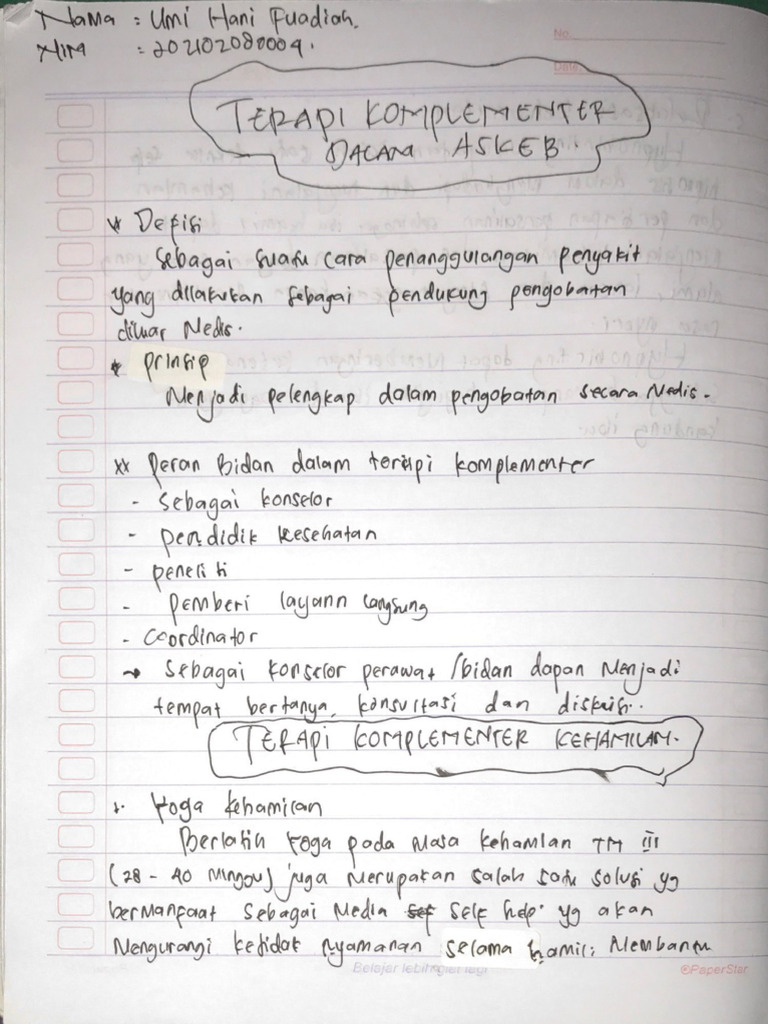 Nama : Umi Hani Fuadiah.
NIM : 202102080009.
No.
Date.
TERAPI KOMPLEMENTER
DALAM ASKEB.
* Defisi
Sebagai suatu cara penanggulangan penyakit
yang dilakukan sebagai pendukung pengobatan
diluar Medis.
* prinsip
Menjadi pelengkap dalam pengobatan secara Medis.
** Peran Bidan dalam terapi komplementer
- Sebagai konselor
- pendidik kesehatan
- peneliti
- pemberi layann langsung
- Coordinator
→ Sebagai konselor perawat /bidan dapan Menjadi
tempat bertanya, konsultasi dan diskusi.
TERAPI KOMPLEMENTER KEHAMILAN.
* Yoga kehamilan
Berlatih Yoga pada Masa kehamlan TM III
(28 - 40 Minggu) juga Merupakan salah satu solusi yg
bermanfaat sebagai Media self help yg akan
Mengurangi ketidak nyamanan selama hamil; Membantu
Belajar lebih giat lagi
©PaperStar